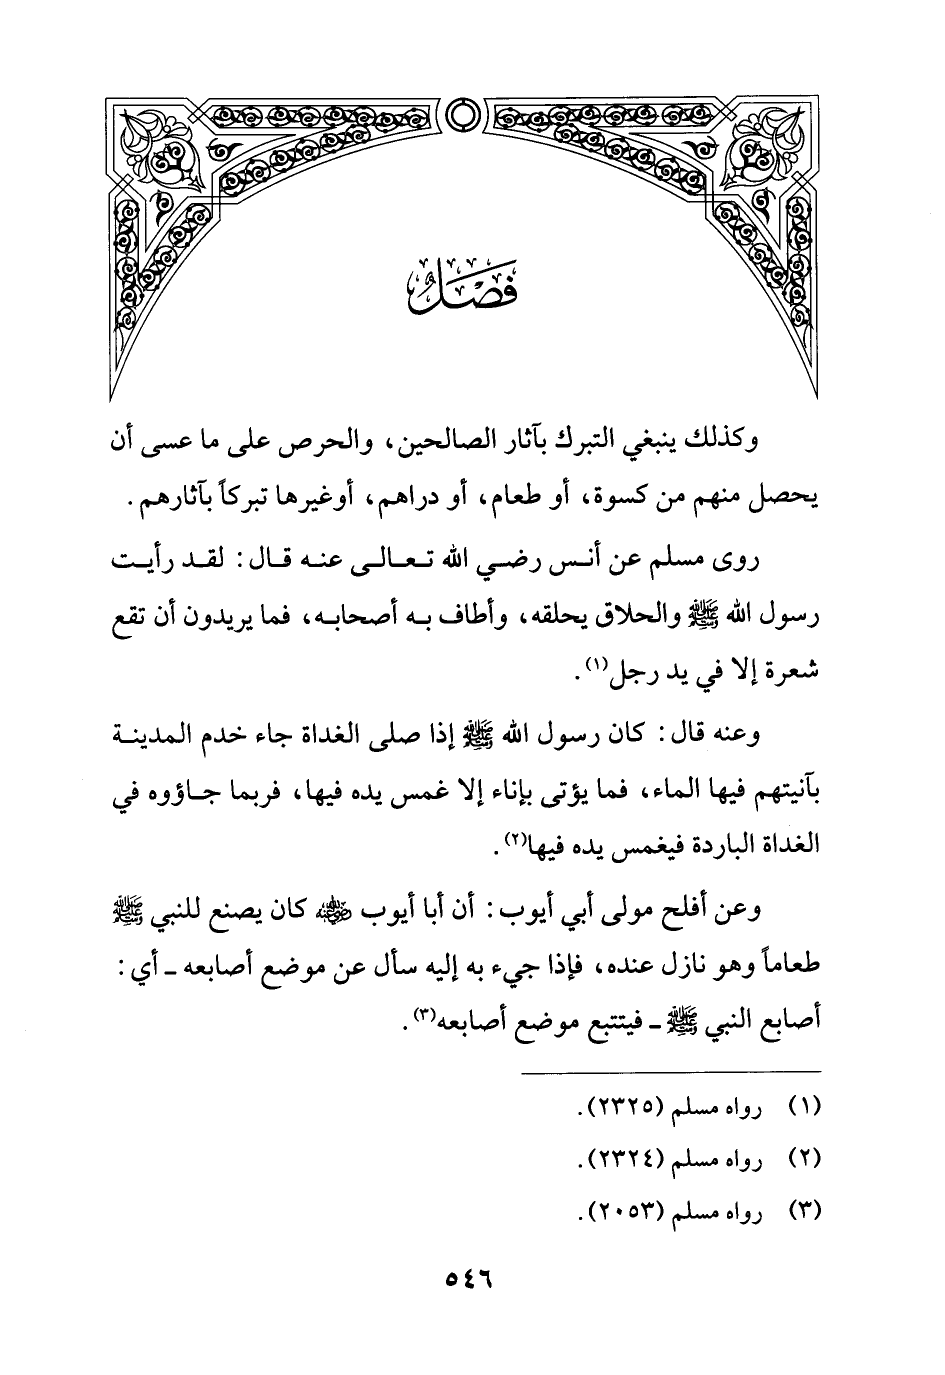 فَصْلٌ
وكذلك ينبغي التبرك بآثار الصالحين، والحرص على ما عسى أن
يحصل منهم من كسوة، أو طعام، أو دراهم، أوغيرها تبركاً بآثارهم.
روى مسلم عن أنس رضي الله تعالى عنه قال: لقد رأيت
رسول الله ﷺ والحلاق يحلقه، وأطاف به أصحابه، فما يريدون أن تقع
شعرة إلا في يد رجل(١).
وعنه قال: كان رسول الله ﷺ إذا صلى الغداة جاء خدم المدينة
بآنيتهم فيها الماء، فما يؤتى بإناء إلا غمس يده فيها، فربما جاؤوه في
الغداة الباردة فيغمس يده فيها(٢).
وعن أفلح مولى أبي أيوب: أن أبا أيوب رضي الله عنه كان يصنع للنبي ﷺ
طعاماً وهو نازل عنده، فإذا جيء به إليه سأل عن موضع أصابعه ـ أي:
أصابع النبي ﷺ ـ فيتتبع موضع أصابعه(٣).
(١) رواه مسلم (٢٣٢٥).
(٢) رواه مسلم (٢٣٢٤).
(٣) رواه مسلم (٢٠٥٣).
٥٤٦